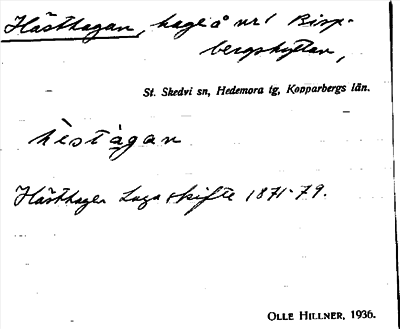 Hästhagan, hage å nr 1 Bisp-
bergshyttan,
St. Skedvi sn, Hedemora tg, Kopparbergs län.
hèstàgan
Hästhagen Laga skifte 1871-79.
OLLE HILLNER, 1936.